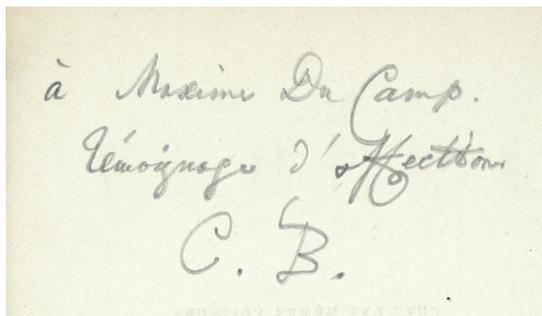 à Maxime Du Camp.
témoignage d'affection
C. B.